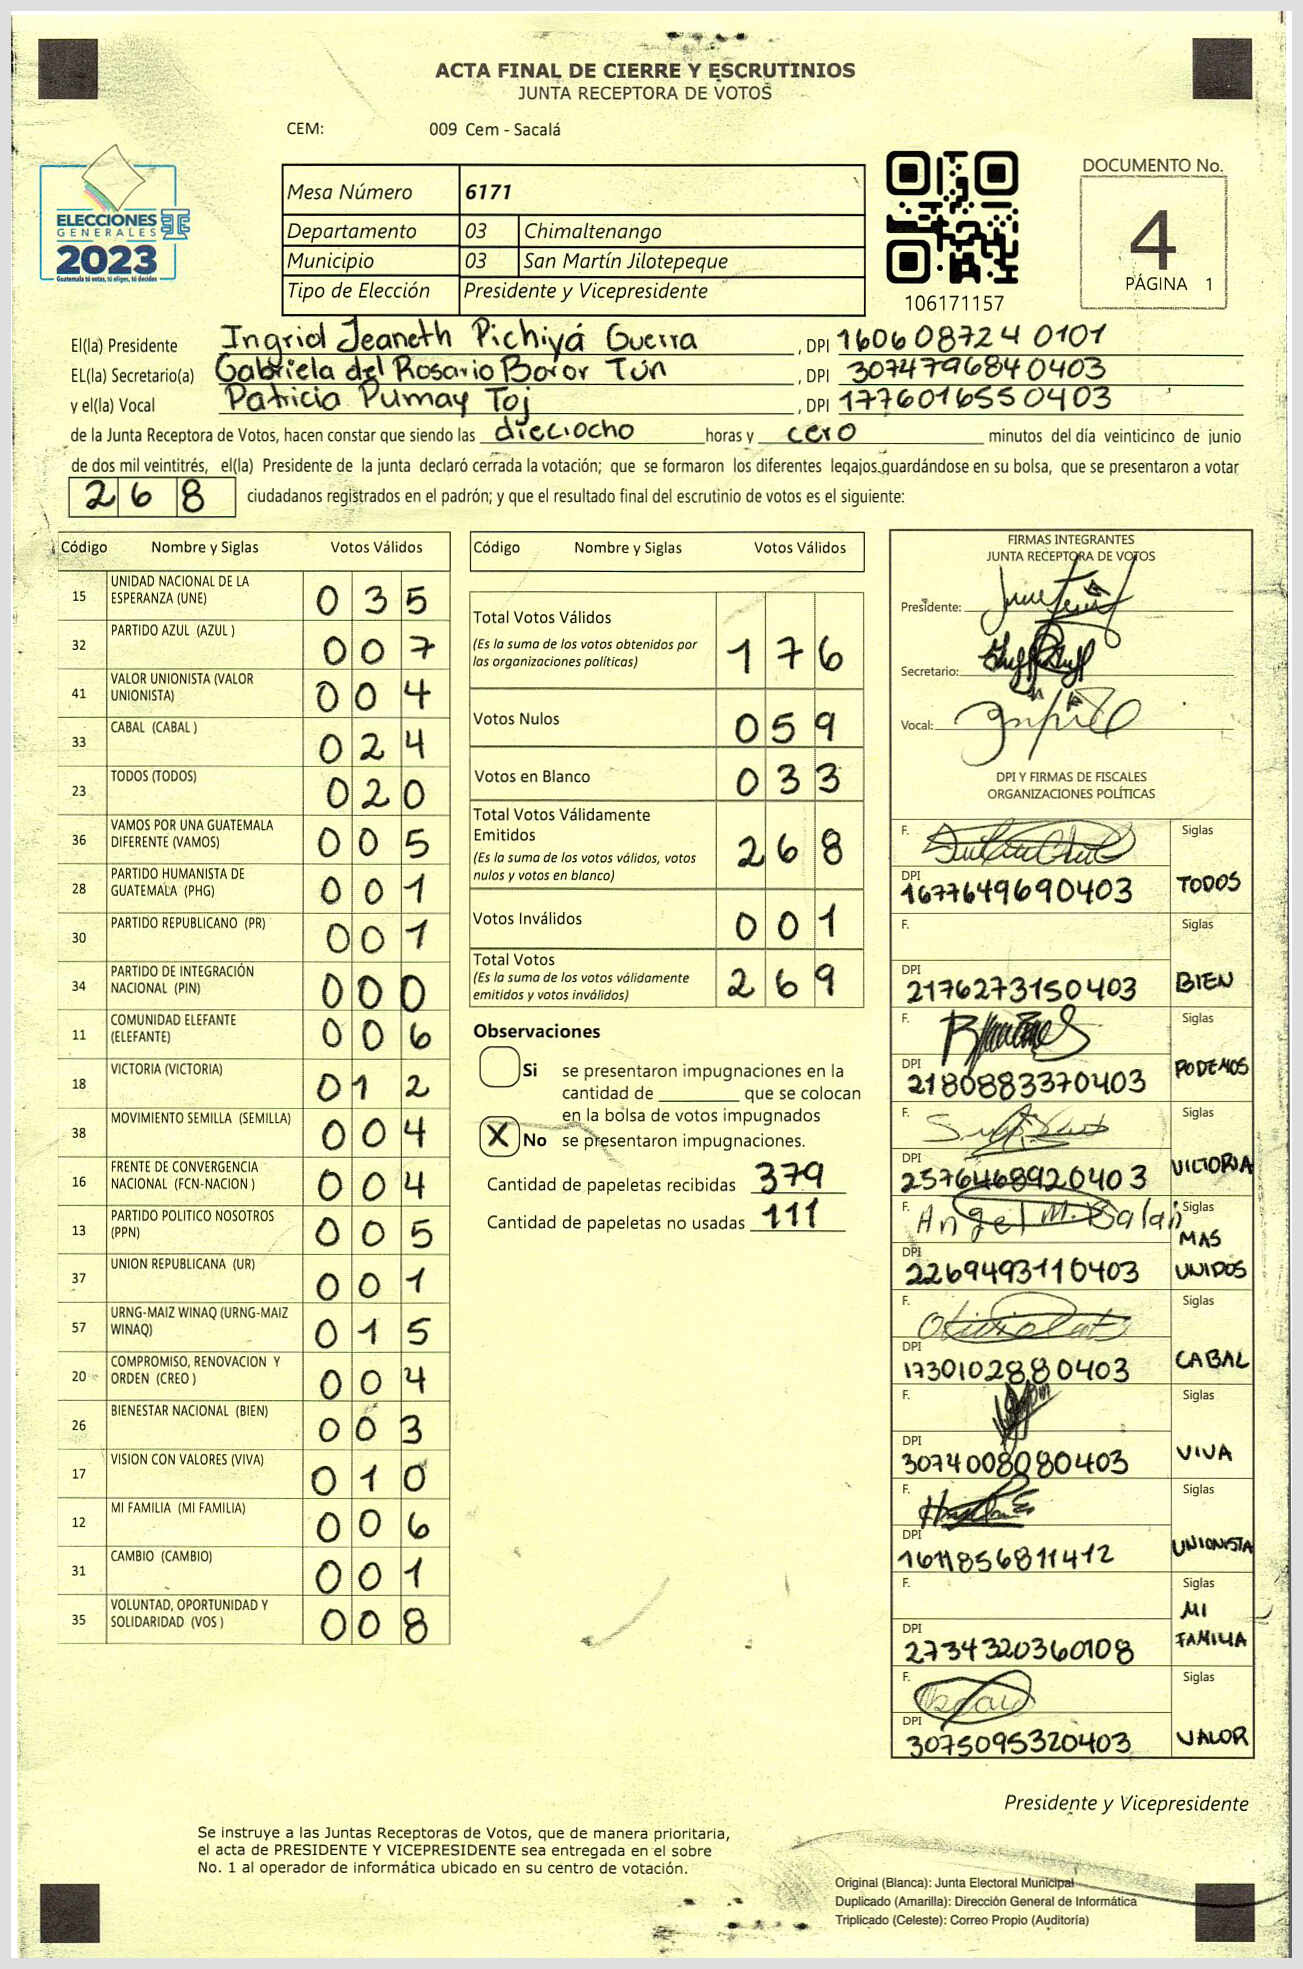 ACTA FINAL DE CIERRE Y ESCRUTINIOS
JUNTA RECEPTORA DE VOTOS
CEM: 009 Cem - Sacalá
ELECCIONES
GENERALES
2023
Guatemala tú votas, tú eliges, tú decides
Mesa Número 6171
Departamento 03 Chimaltenango
Municipio 03 San Martín Jilotepeque
Tipo de Elección Presidente y Vicepresidente
106171157
DOCUMENTO No.
4
PÁGINA 1
El(la) Presidente Ingrid Jeaneth Pichiyá Guerra, DPI 160608724 0101
EL(la) Secretario(a) Gabriela del Rosario Boror Tún, DPI 3074796840403
y el(la) Vocal Patricia Pumay Toj, DPI 1776016550403
de la Junta Receptora de Votos, hacen constar que siendo las dieciocho horas y cero minutos del día veinticinco de junio
de dos mil veintitrés, el(la) Presidente de la junta declaró cerrada la votación; que se formaron los diferentes legajos guardándose en su bolsa, que se presentaron a votar
268 ciudadanos registrados en el padrón; y que el resultado final del escrutinio de votos es el siguiente:
Código Nombre y Siglas Votos Válidos
15 UNIDAD NACIONAL DE LA ESPERANZA (UNE) 035
32 PARTIDO AZUL (AZUL ) 007
41 VALOR UNIONISTA (VALOR UNIONISTA) 004
33 CABAL (CABAL ) 024
23 TODOS (TODOS) 020
36 VAMOS POR UNA GUATEMALA DIFERENTE (VAMOS) 005
28 PARTIDO HUMANISTA DE GUATEMALA (PHG) 001
30 PARTIDO REPUBLICANO (PR) 001
34 PARTIDO DE INTEGRACIÓN NACIONAL (PIN) 000
11 COMUNIDAD ELEFANTE (ELEFANTE) 006
18 VICTORIA (VICTORIA) 012
38 MOVIMIENTO SEMILLA (SEMILLA) 004
16 FRENTE DE CONVERGENCIA NACIONAL (FCN-NACION ) 004
13 PARTIDO POLITICO NOSOTROS (PPN) 005
37 UNION REPUBLICANA (UR) 001
57 URNG-MAIZ WINAQ (URNG-MAIZ WINAQ) 015
20 COMPROMISO, RENOVACION Y ORDEN (CREO ) 004
26 BIENESTAR NACIONAL (BIEN) 003
17 VISION CON VALORES (VIVA) 010
12 MI FAMILIA (MI FAMILIA) 006
31 CAMBIO (CAMBIO) 001
35 VOLUNTAD, OPORTUNIDAD Y SOLIDARIDAD (VOS ) 008
Código Nombre y Siglas Votos Válidos
Total Votos Válidos
(Es la suma de los votos obtenidos por las organizaciones políticas) 176
Votos Nulos 059
Votos en Blanco 033
Total Votos Válidamente Emitidos
(Es la suma de los votos válidos, votos nulos y votos en blanco) 268
Votos Inválidos 001
Total Votos
(Es la suma de los votos válidamente emitidos y votos inválidos) 269
Observaciones
Si se presentaron impugnaciones en la
cantidad de ________ que se colocan
en la bolsa de votos impugnados
X No se presentaron impugnaciones.
Cantidad de papeletas recibidas 379
Cantidad de papeletas no usadas 111
FIRMAS INTEGRANTES
JUNTA RECEPTORA DE VOTOS
Presidente:
Secretario:
Vocal:
DPI Y FIRMAS DE FISCALES
ORGANIZACIONES POLÍTICAS
F. Siglas
DPI 1677649690403 TODOS
F. Siglas
DPI 2176273150403 BIEN
F. Siglas
DPI 2180883370403 PODEMOS
F. Siglas
DPI 2576468920403 VICTORIA
F. Angel M. Balan Siglas
DPI 2269493110403 MAS UNIDOS
F. Siglas
DPI 1730102880403 CABAL
F. Siglas
DPI 3074008080403 VIVA
F. Siglas
DPI 1611856811412 UNIONISTA
F. Siglas
DPI 2734320360108 MI FAMILIA
F. Siglas
DPI 3075095320403 VALOR
Presidente y Vicepresidente
Se instruye a las Juntas Receptoras de Votos, que de manera prioritaria,
el acta de PRESIDENTE Y VICEPRESIDENTE sea entregada en el sobre
No. 1 al operador de informática ubicado en su centro de votación.
Original (Blanca): Junta Electoral Municipal
Duplicado (Amarilla): Dirección General de Informática
Triplicado (Celeste): Correo Propio (Auditoría)